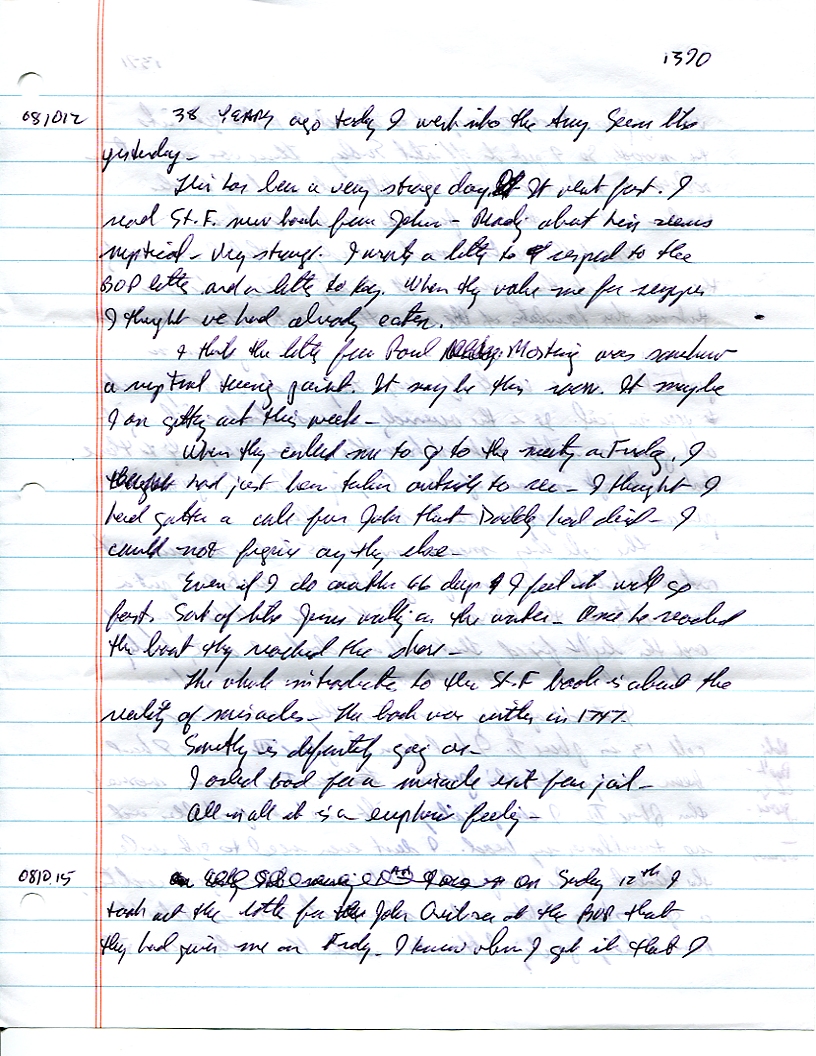 1370
081012 38 YEARS ago today I went into the Army. Seems like
yesterday -
This has been a very strange day. It went fast. I
read St. F. new book from John - Reading about him seems
mystical - very strange. I wrote a letter to respond to the
BOP letter and a letter to Kay. When they woke me for supper
I thought we had already eaten.
I think the letter from Paul Morning was somehow
a mystical turning point. It may be this room. It may be
I am getting out this week -
When they called me to go to the meeting on Friday, I
had just been taken outside to rec - I thought I
had gotten a call from John that Daddy had died - I
could not figure anything else -
Even if I do another 66 days I feel it will go
fast. Sort of like Jesus walking on the water - Once he reached
the boat they reached the shore -
The whole introduction to the St. F book is about the
reality of miracles - The book was written in 1747.
Something is definitely going on -
I asked God for a miracle exit from jail -
All in all it is an euphoric feeling -
0810.15 on Sunday 12th I
took out the letter from John at the BOP that
they had given me on Friday - I knew when I got it that I